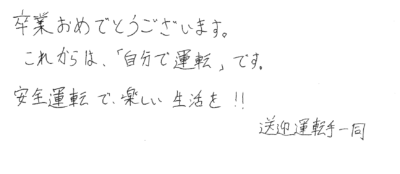 卒業おめでとうございます。
これからは、「自分で運転」です。
安全運転で、楽しい生活を!!
送迎運転手一同